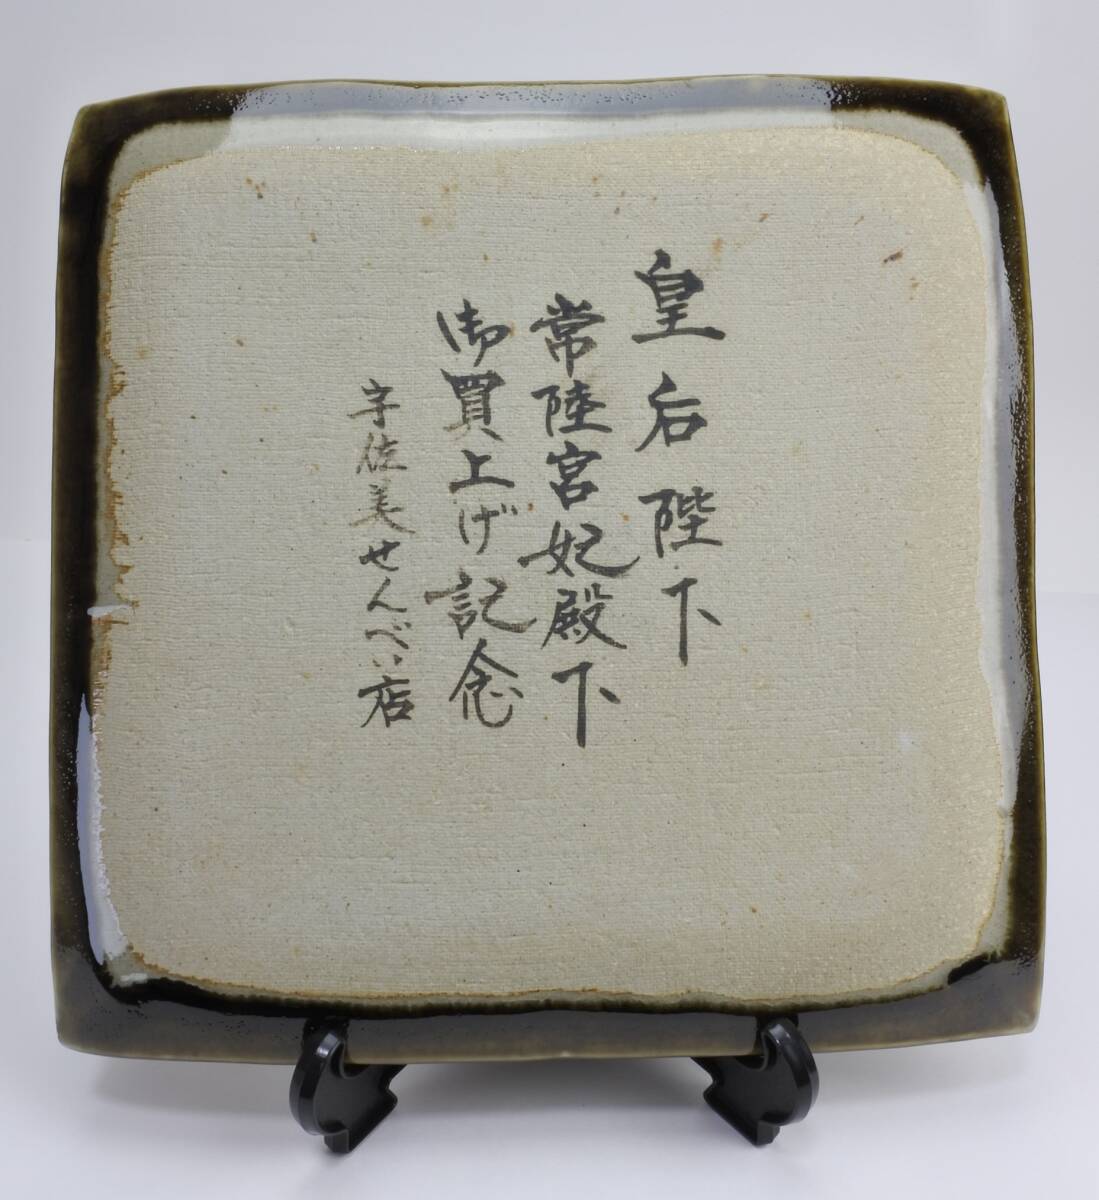 皇后陛下
常陸宮妃殿下
御買上げ記念
宇佐美せんべい店